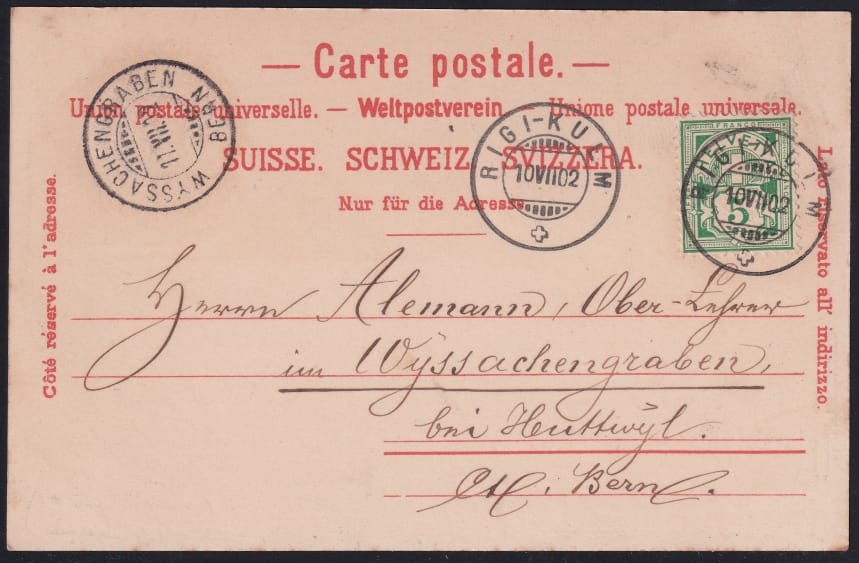 — Carte postale. —
Union postale universelle. — Weltpostverein. — Unione postale universale.
SUISSE. SCHWEIZ. SVIZZERA.
Nur für die Adresse.
Côté réservé à l'adresse.
Lato riservato all' indirizzo.
WYSSACHENGRABEN (BERN)
11.VII.02
RIGI-KULM
10VII02
FRANCO
HELVETIA
5
RIGI-KULM
10VII02
Herrn Alemann, Ober-Lehrer
im Wÿssachengraben,
bei Huttwÿl.
Ct. Bern.